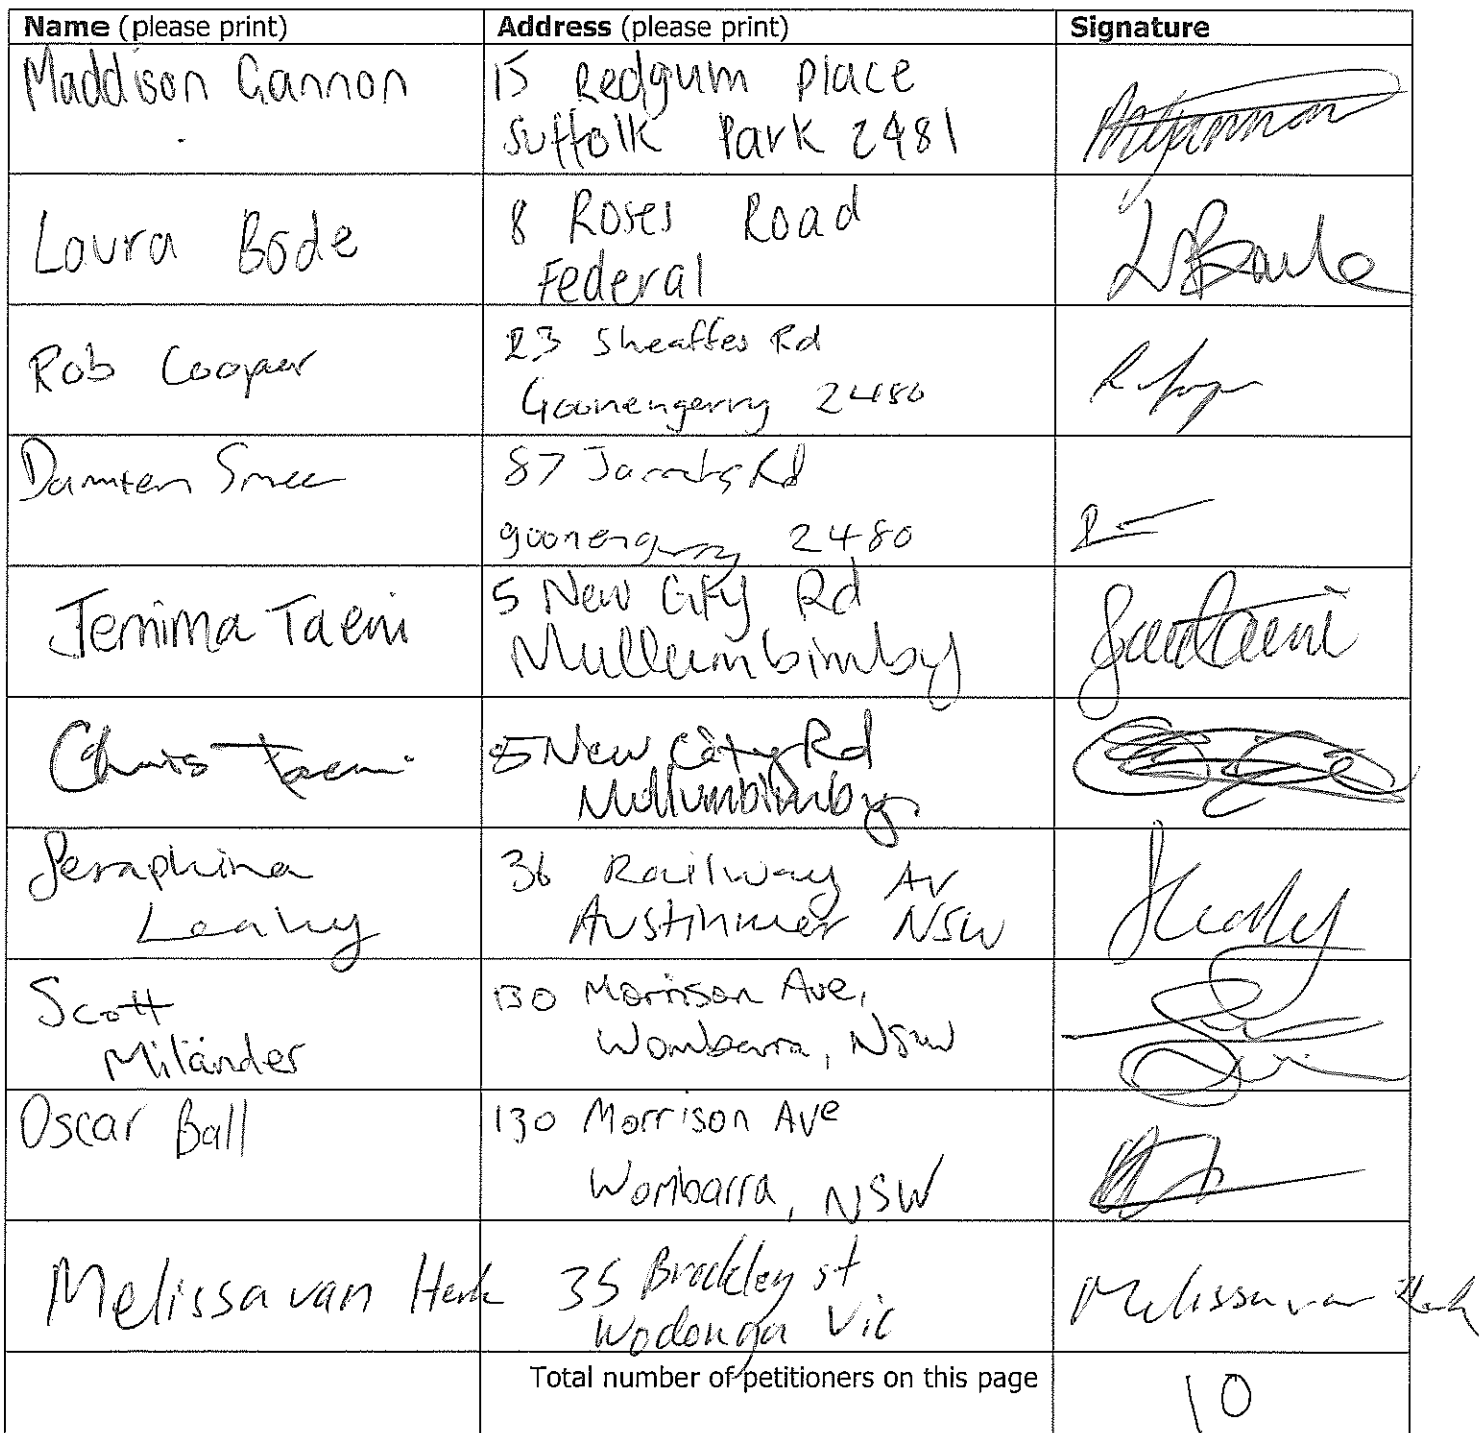 Name (please print) Address (please print) Signature
Maddison Gannon 15 Redgum Place
Suffolk Park 2481
Laura Bode 8 Roses Road
Federal
Rob Cooper 23 Sheaffes Rd
Goonengerry 2480
Damien 87 Rd
goonengerry 2480
Jemima Taeni 5 New City Rd
Mullumbimby
Chris Taeni 5 New City Rd
Mullumbimby
Seraphina 36 Railway Av
Leahy Austinmer NSW
Scott 130 Morrison Ave,
Milander Wombarra, NSW
Oscar Ball 130 Morrison Ave
Wombarra, NSW
Melissa van Herk 35 Brockley st Melissa van Herk
Wodonga Vic
Total number of petitioners on this page 10